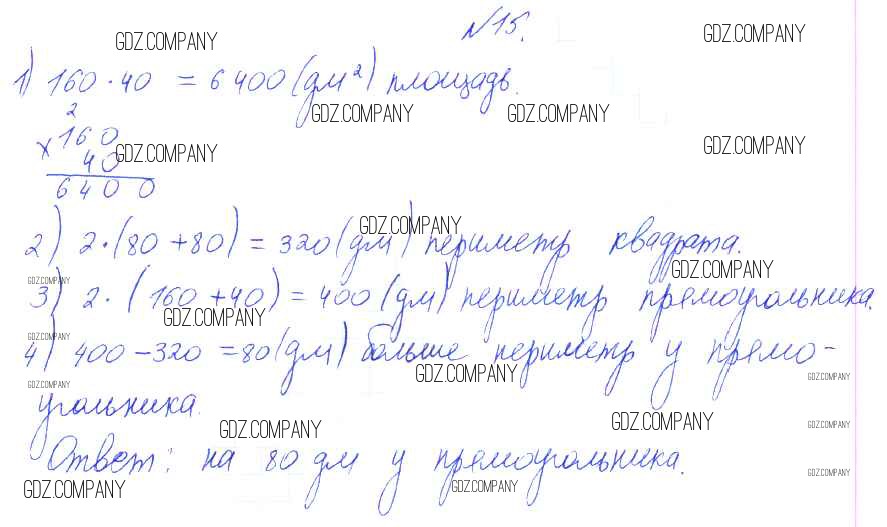 №15.
GDZ.COMPANY GDZ.COMPANY
1) 160 · 40 = 6400 (дм²) площадь.
GDZ.COMPANY GDZ.COMPANY
2
× 160
40 GDZ.COMPANY GDZ.COMPANY
6400
GDZ.COMPANY
2) 2·(80+80) = 320 (дм) периметр квадрата.
GDZ.COMPANY GDZ.COMPANY
3) 2·(160+40) = 400 (дм) периметр прямоугольника.
GDZ.COMPANY GDZ.COMPANY
4) 400-320 = 80 (дм) больше периметр у прямо-
GDZ.COMPANY GDZ.COMPANY GDZ.COMPANY
угольника.
GDZ.COMPANY GDZ.COMPANY GDZ.COMPANY
Ответ: на 80 дм у прямоугольника.
GDZ.COMPANY GDZ.COMPANY GDZ.COMPANY